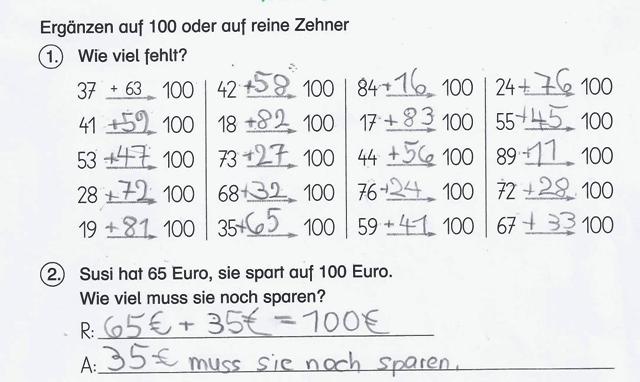 Ergänzen auf 100 oder auf reine Zehner
1. Wie viel fehlt?
37 + 63 100 42 +58 100 84 +16 100 24 + 76 100
41 +59 100 18 +82 100 17 +83 100 55 +45 100
53 +47 100 73 +27 100 44 +56 100 89 +11 100
28 +72 100 68 +32 100 76 +24 100 72 +28 100
19 +81 100 35 +65 100 59 +41 100 67 + 33 100
2. Susi hat 65 Euro, sie spart auf 100 Euro.
Wie viel muss sie noch sparen?
R: 65€ + 35€ = 100€
A: 35€ muss sie noch sparen.